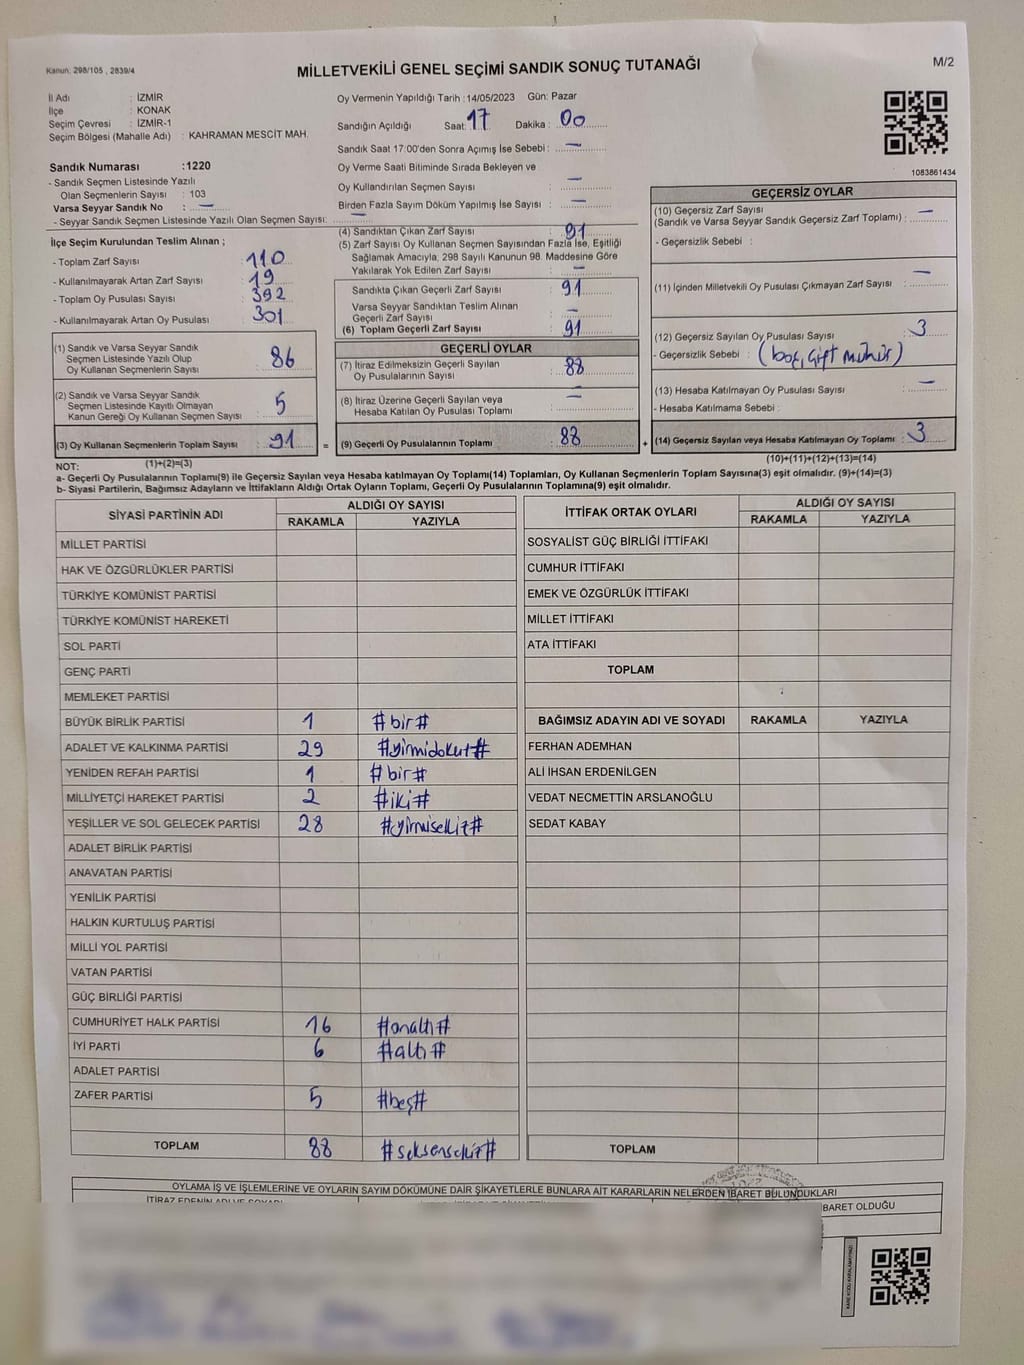 Kanun: 298/105 , 2839/4
MİLLETVEKİLİ GENEL SEÇİMİ SANDIK SONUÇ TUTANAĞI
M/2
İl Adı : İZMİR
İlçe : KONAK
Seçim Çevresi : İZMİR-1
Seçim Bölgesi (Mahalle Adı) : KAHRAMAN MESCİT MAH.
Sandık Numarası : 1220
- Sandık Seçmen Listesinde Yazılı
Olan Seçmenlerin Sayısı : 103
Varsa Seyyar Sandık No : —
- Seyyar Sandık Seçmen Listesinde Yazılı Olan Seçmen Sayısı: —
Oy Vermenin Yapıldığı Tarih :14/05/2023 Gün: Pazar
Sandığın Açıldığı Saat: 17 Dakika : 00
Sandık Saat 17:00'den Sonra Açımış İse Sebebi : —
Oy Verme Saati Bitiminde Sırada Bekleyen ve
Oy Kullandırılan Seçmen Sayısı : —
Birden Fazla Sayım Döküm Yapılmış İse Sayısı : —
1083861434
İlçe Seçim Kurulundan Teslim Alınan ;
- Toplam Zarf Sayısı : 110
- Kullanılmayarak Artan Zarf Sayısı : 19
- Toplam Oy Pusulası Sayısı : 392
- Kullanılmayarak Artan Oy Pusulası : 301
(1) Sandık ve Varsa Seyyar Sandık
Seçmen Listesinde Yazılı Olup
Oy Kullanan Seçmenlerin Sayısı : 86
(2) Sandık ve Varsa Seyyar Sandık
Seçmen Listesinde Kayıtlı Olmayan
Kanun Gereği Oy Kullanan Seçmen Sayısı : 5
(3) Oy Kullanan Seçmenlerin Toplam Sayısı : 91 =
(1)+(2)=(3)
(4) Sandıktan Çıkan Zarf Sayısı : 91
(5) Zarf Sayısı Oy Kullanan Seçmen Sayısından Fazla İse, Eşitliği
Sağlamak Amacıyla, 298 Sayılı Kanunun 98. Maddesine Göre
Yakılarak Yok Edilen Zarf Sayısı : —
Sandıkta Çıkan Geçerli Zarf Sayısı : 91
Varsa Seyyar Sandıktan Teslim Alınan
Geçerli Zarf Sayısı : —
(6) Toplam Geçerli Zarf Sayısı : 91
GEÇERLİ OYLAR
(7) İtiraz Edilmeksizin Geçerli Sayılan
Oy Pusulalarının Sayısı : 88
(8) İtiraz Üzerine Geçerli Sayılan veya
Hesaba Katılan Oy Pusulası Toplamı : —
(9) Geçerli Oy Pusulalarının Toplamı : 88 +
GEÇERSİZ OYLAR
(10) Geçersiz Zarf Sayısı
(Sandık ve Varsa Seyyar Sandık Geçersiz Zarf Toplamı) : —
- Geçersizlik Sebebi :
(11) İçinden Milletvekili Oy Pusulası Çıkmayan Zarf Sayısı : —
(12) Geçersiz Sayılan Oy Pusulası Sayısı : 3
- Geçersizlik Sebebi : (boş, çift mühür)
(13) Hesaba Katılmayan Oy Pusulası Sayısı : —
- Hesaba Katılmama Sebebi :
(14) Geçersiz Sayılan veya Hesaba Katılmayan Oy Toplamı : 3
(10)+(11)+(12)+(13)=(14)
NOT:
a- Geçerli Oy Pusulalarının Toplamı(9) ile Geçersiz Sayılan veya Hesaba katılmayan Oy Toplamı(14) Toplamları, Oy Kullanan Seçmenlerin Toplam Sayısına(3) eşit olmalıdır. (9)+(14)=(3)
b- Siyasi Partilerin, Bağımsız Adayların ve İttifakların Aldığı Ortak Oyların Toplamı, Geçerli Oy Pusulalarının Toplamına(9) eşit olmalıdır.
SİYASİ PARTİNİN ADI
ALDIĞI OY SAYISI
RAKAMLA YAZIYLA
MİLLET PARTİSİ
HAK VE ÖZGÜRLÜKLER PARTİSİ
TÜRKİYE KOMÜNİST PARTİSİ
TÜRKİYE KOMÜNİST HAREKETİ
SOL PARTİ
GENÇ PARTİ
MEMLEKET PARTİSİ
BÜYÜK BİRLİK PARTİSİ 1 #bir#
ADALET VE KALKINMA PARTİSİ 29 #yirmidokuz#
YENİDEN REFAH PARTİSİ 1 #bir#
MİLLİYETÇİ HAREKET PARTİSİ 2 #iki#
YEŞİLLER VE SOL GELECEK PARTİSİ 28 #yirmisekiz#
ADALET BİRLİK PARTİSİ
ANAVATAN PARTİSİ
YENİLİK PARTİSİ
HALKIN KURTULUŞ PARTİSİ
MİLLİ YOL PARTİSİ
VATAN PARTİSİ
GÜÇ BİRLİĞİ PARTİSİ
CUMHURİYET HALK PARTİSİ 16 #onaltı#
İYİ PARTİ 6 #altı#
ADALET PARTİSİ
ZAFER PARTİSİ 5 #beş#
TOPLAM 88 #seksensekiz#
İTTİFAK ORTAK OYLARI
ALDIĞI OY SAYISI
RAKAMLA YAZIYLA
SOSYALİST GÜÇ BİRLİĞİ İTTİFAKI
CUMHUR İTTİFAKI
EMEK VE ÖZGÜRLÜK İTTİFAKI
MİLLET İTTİFAKI
ATA İTTİFAKI
TOPLAM
BAĞIMSIZ ADAYIN ADI VE SOYADI RAKAMLA YAZIYLA
FERHAN ADEMHAN
ALİ İHSAN ERDENİLGEN
VEDAT NECMETTİN ARSLANOĞLU
SEDAT KABAY
TOPLAM
OYLAMA İŞ VE İŞLEMLERİNE VE OYLARIN SAYIM DÖKÜMÜNE DAİR ŞİKAYETLERLE BUNLARA AİT KARARLARIN NELERDEN İBARET BULUNDUKLARI
İTİRAZ EDENİN ADI VE SOYADI
BARET OLDUĞU
KARE KODU KARALAMAYINIZ!